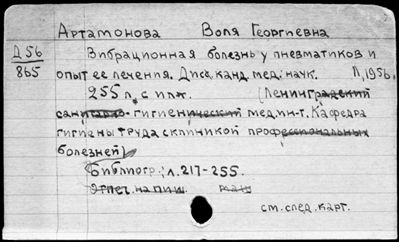 Артамонова Воля Георгиевна
Д 56
865
Вибрационная болезнь у пневматиков и
опыт ее лечения. Дисс. канд. мед. наук. Л, 1956.
255 л. с илл. (Ленинградский
санитарно-гигиенический мед. ин-т. Кафедра
гигиены труда с клиникой профессиональных
болезней)
Библиогр.: л. 217-255.
Отпеч. на пиш. маш
см. след. карт.